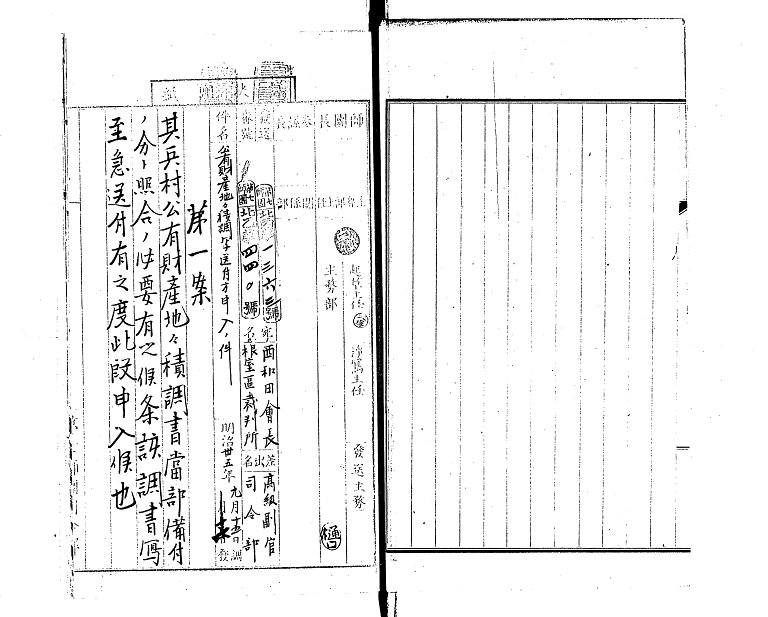 師團長
參謀長
主務部
關係部
起案主任
淨寫主任
發送主務
主務部
發送
番號
第七師團
北
一三六三號
四四〇號
宛名
西和田會長
根室區裁判所
差出名
高級副官
司令部
件名
公有財產地々積調书送付方申入ノ件
明治卅五年九月十五日調
月 日發
第一案
其兵村公有財產地々積調書當部備付
ノ分ト照合ノ必要有之候条該調書寫
至急送付有之度此段申入候也